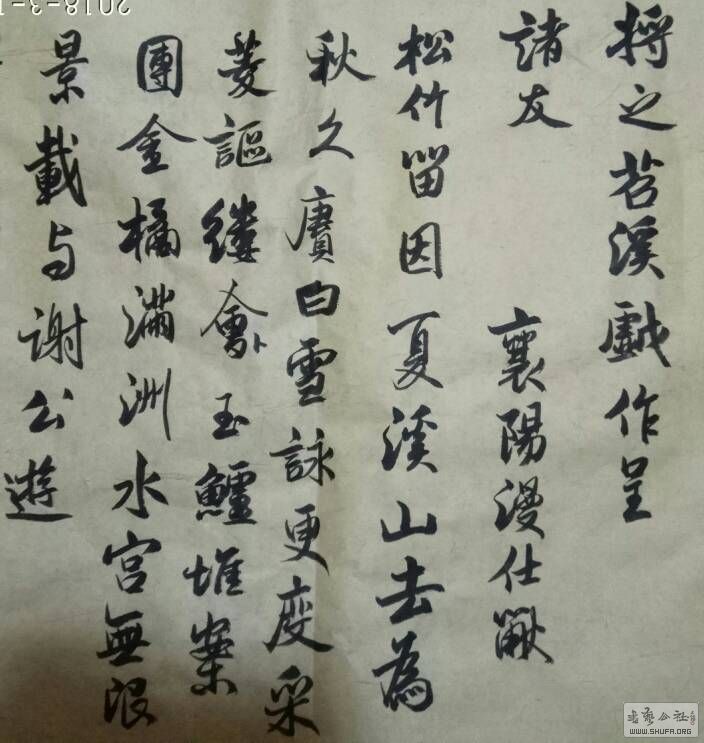 將之苕溪戲作呈
諸友 襄陽漫仕黻
松竹留因夏溪山去為
秋久賡白雪詠更度采
菱謳縷會卜玉鱸堆案
團金橘滿洲水宮無限
景載与謝公遊
2018-3-1
书艺公社
WWW.SHUFA.ORG